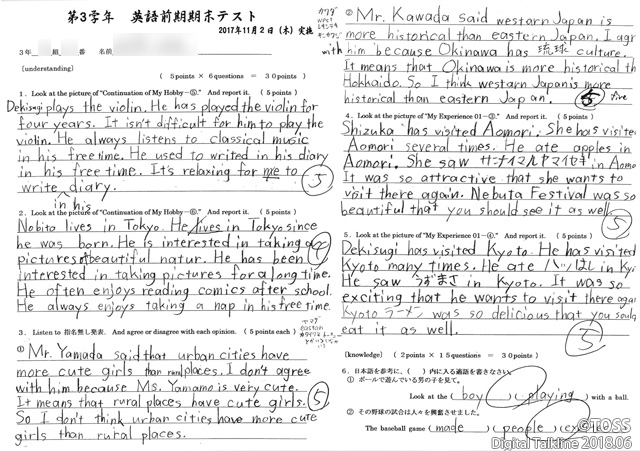 第3学年 英語前期期末テスト
2017年11月2日(木)実施
3年 組 番 名前
[understanding]
(5points×6questions＝30points)
1．Look at the picture of "Continuation of My Hobby—⑤." And report it. (5points)
Dekisugi plays the violin. He has played the violin for
four years. It isn't difficult for him to play the
violin. He always listens to classical music
in his free time. He used to writed in his diary
in his free time. It's relaxing for me to
write diary.
in his
5
2．Look at the picture of "Continuation of My Hobby—⑥." And report it. (5points)
Nobita lives in Tokyo. He lives in Tokyo since
he was born. He is interested in taking a
pictures of beautiful natur. He has been
interested in taking pictures for a long time.
He often enjoys reading comics after school.
He always enjoys taking a nap in his free time.
4
3．Listen to 指名無し発表. And agree or disagree with each opinion. (5points each)
①Mr. Yamada said that urban cities have
more cute girls than rural places. I don't agree
with him because Ms. Yamamo is very cute.
It means that rural places have cute girls.
So I don't think urban cities have more cute
girls than rural places.
5
②Mr. Kawada said westarn Japan is
more historical than eastern Japan. I agr
with him because Okinawa has 琉球 culture.
It means that Okinawa is more historical th
Hokkaido. So I think westarn Japan is more
historical than eastern Japan.
5
five
4．Look at the picture of "My Experience 01—③." And report it. (5points)
Shizuka has visited Aomori. She has visited
Aomori several times. He ate apples in
Aomori. She saw in Aomo
It was so attractive that she wants to
visit there again. Nebuta Festival was so
beautiful that you should see it as well.
5
5．Look at the picture of "My Experience 01—④." And report it. (5points)
Dekisugi has visited Kyoto. He has visited
Kyoto many times. He ate ハツはし in Kyo
He saw うずまさ in Kyoto. It was so
exciting that he wants to visit there again
Kyoto ラーメン was so delicious that you should
eat it as well.
5
[knowledge] (2points×15questions＝30points)
6．日本語を参考に，( )内に入る適語を書きなさい．
① ボールで遊んでいる男の子を見て．
Look at the ( boy ) ( playing ) with a ball.
② その野球の試合は人々を興奮させました．
The baseball game ( made ) ( people )
©TOSS
Digital Talkline 2018.06